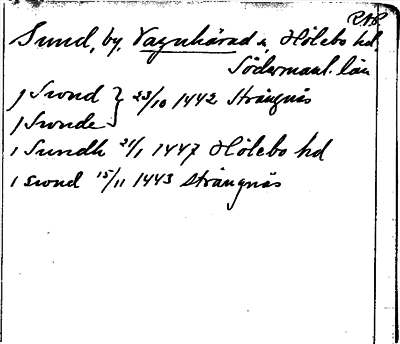 P.N.R.
Sund, by, Vagnhärad s, Hölebo hd
Södermanl. län
J Swnd } 23/10 1442 Strängnäs
J Swnde
i Sundh 21/1 1447 Hölebo hd
i swnd 15/11 1443 Strängnäs